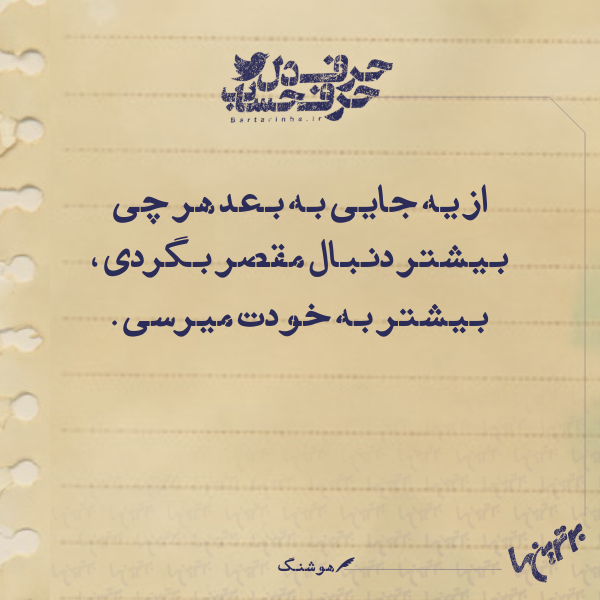 حرف دل
حرف حساب
Bartarinha.ir
از یه جایی به بعد هر چی
بیشتر دنبال مقصر بگردی،
بیشتر به خودت میرسی.
هوشنگ
برترین‌ها